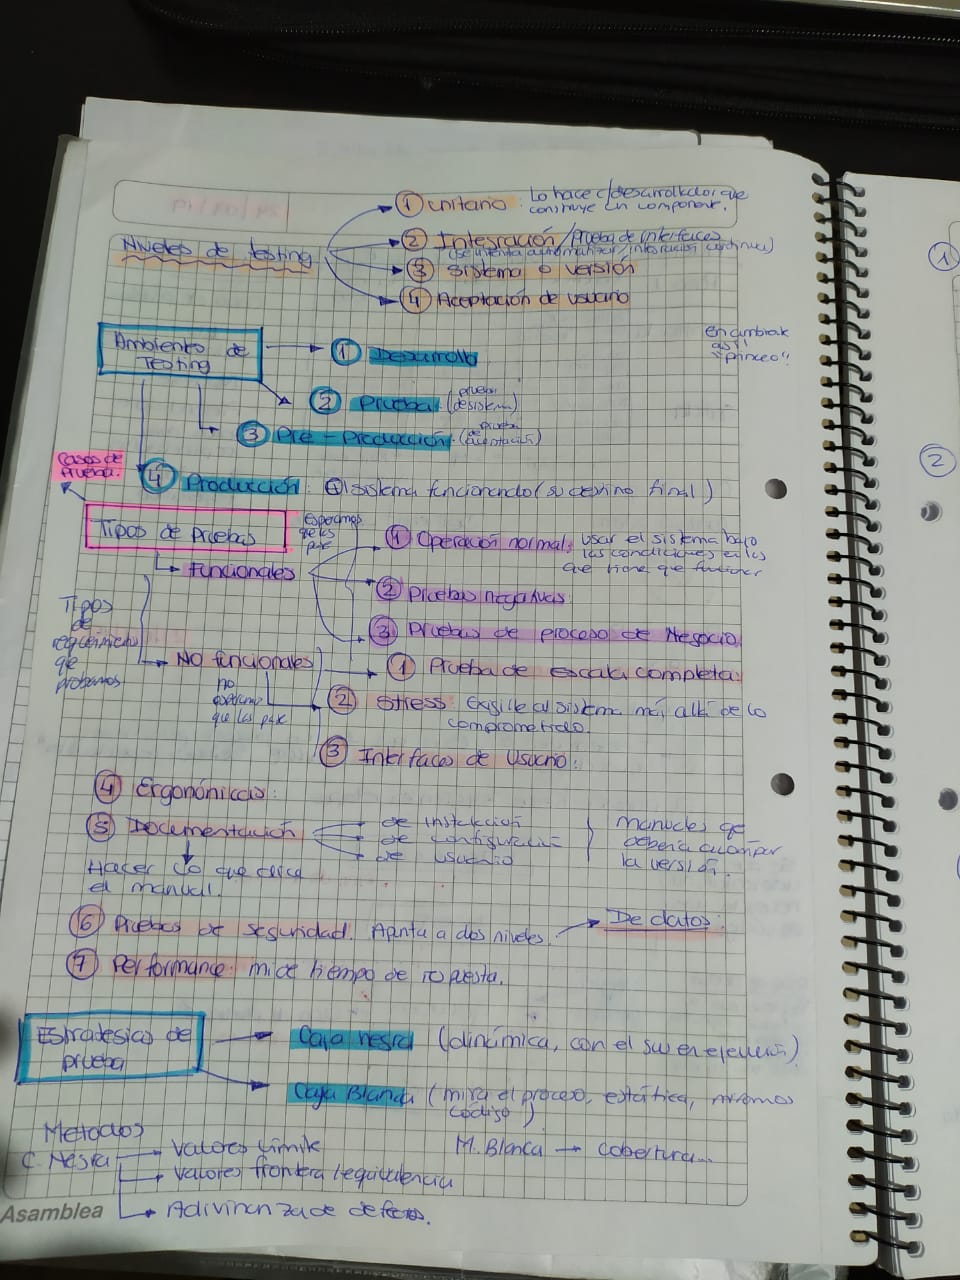 ① Unitario: Lo hace c/desarrollador que
construye un componente.
Niveles de testing
② Integración/Prueba de interfaces
(se intenta automatizar/integración continua)
③ Sistema o versión
④ Aceptación de usuario
Ambiento de
Testing
① Desarrollo
② Prueba (prueba
de sistema)
③ Pre-Producción (prueba
de aceptación)
Casos de
Prueba.
④ Producción: El sistema funcionando (su destino final)
Tipos de Pruebas
Esperamos
que les
pase
① Operación normal: usar el sistema bajo
las condiciones en las
que tiene que funcionar
↳ Funcionales
② Pruebas negativas
③ Pruebas de proceso de Negocio
Tipos
de
requerimiento
que
probamos
No funcionales
no
esperamos
que les pase
① Prueba de escala completa:
② Stress: Exigirle al sistema más allá de lo
comprometido.
③ Interfaces de Usuario:
④ Ergonómicas:
⑤ Documentación
de instalación
de configuración
de usuario
manuales que
debería acompañar
la versión.
Hacer lo que dice
el manual.
⑥ Pruebas de seguridad. Apunta a dos niveles
De datos:
⑦ Performance: mide tiempo de respuesta.
Estrategias de
prueba
Caja negra (dinámica, con el sw en ejecución)
Caja Blanca (mira el proceso, estática, miramos
código)
Métodos
C. Negra
Valores límite
Valores frontera/equivalencia
Adivinanza de defectos.
M. Blanca → cobertura...
Asamblea
①
②